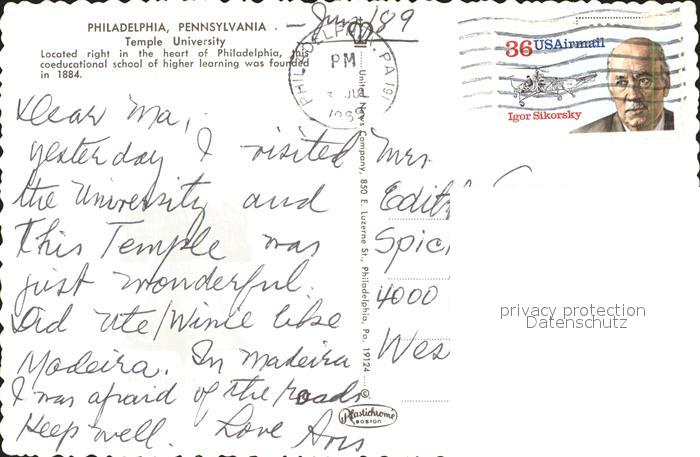 PHILADELPHIA, PENNSYLVANIA
Temple University
Located right in the heart of Philadelphia, this
coeducational school of higher learning was founded
in 1884.
PHILADELPHIA, PA 191
PM
JUL
36 USAirmail
Igor Sikorsky
Dear Ma,
yesterday I visited
the University and
this Temple was
just wonderful.
Did Ute/Winie like
Madeira. In Madeira
I was afraid of the roads
Keep well. Love
United News Company, 850 E. Luzerne St., Philadelphia, Pa. 19124
Plastichrome
BOSTON
Mrs.
Edith
Spic
4000
Wes
privacy protection
Datenschutz